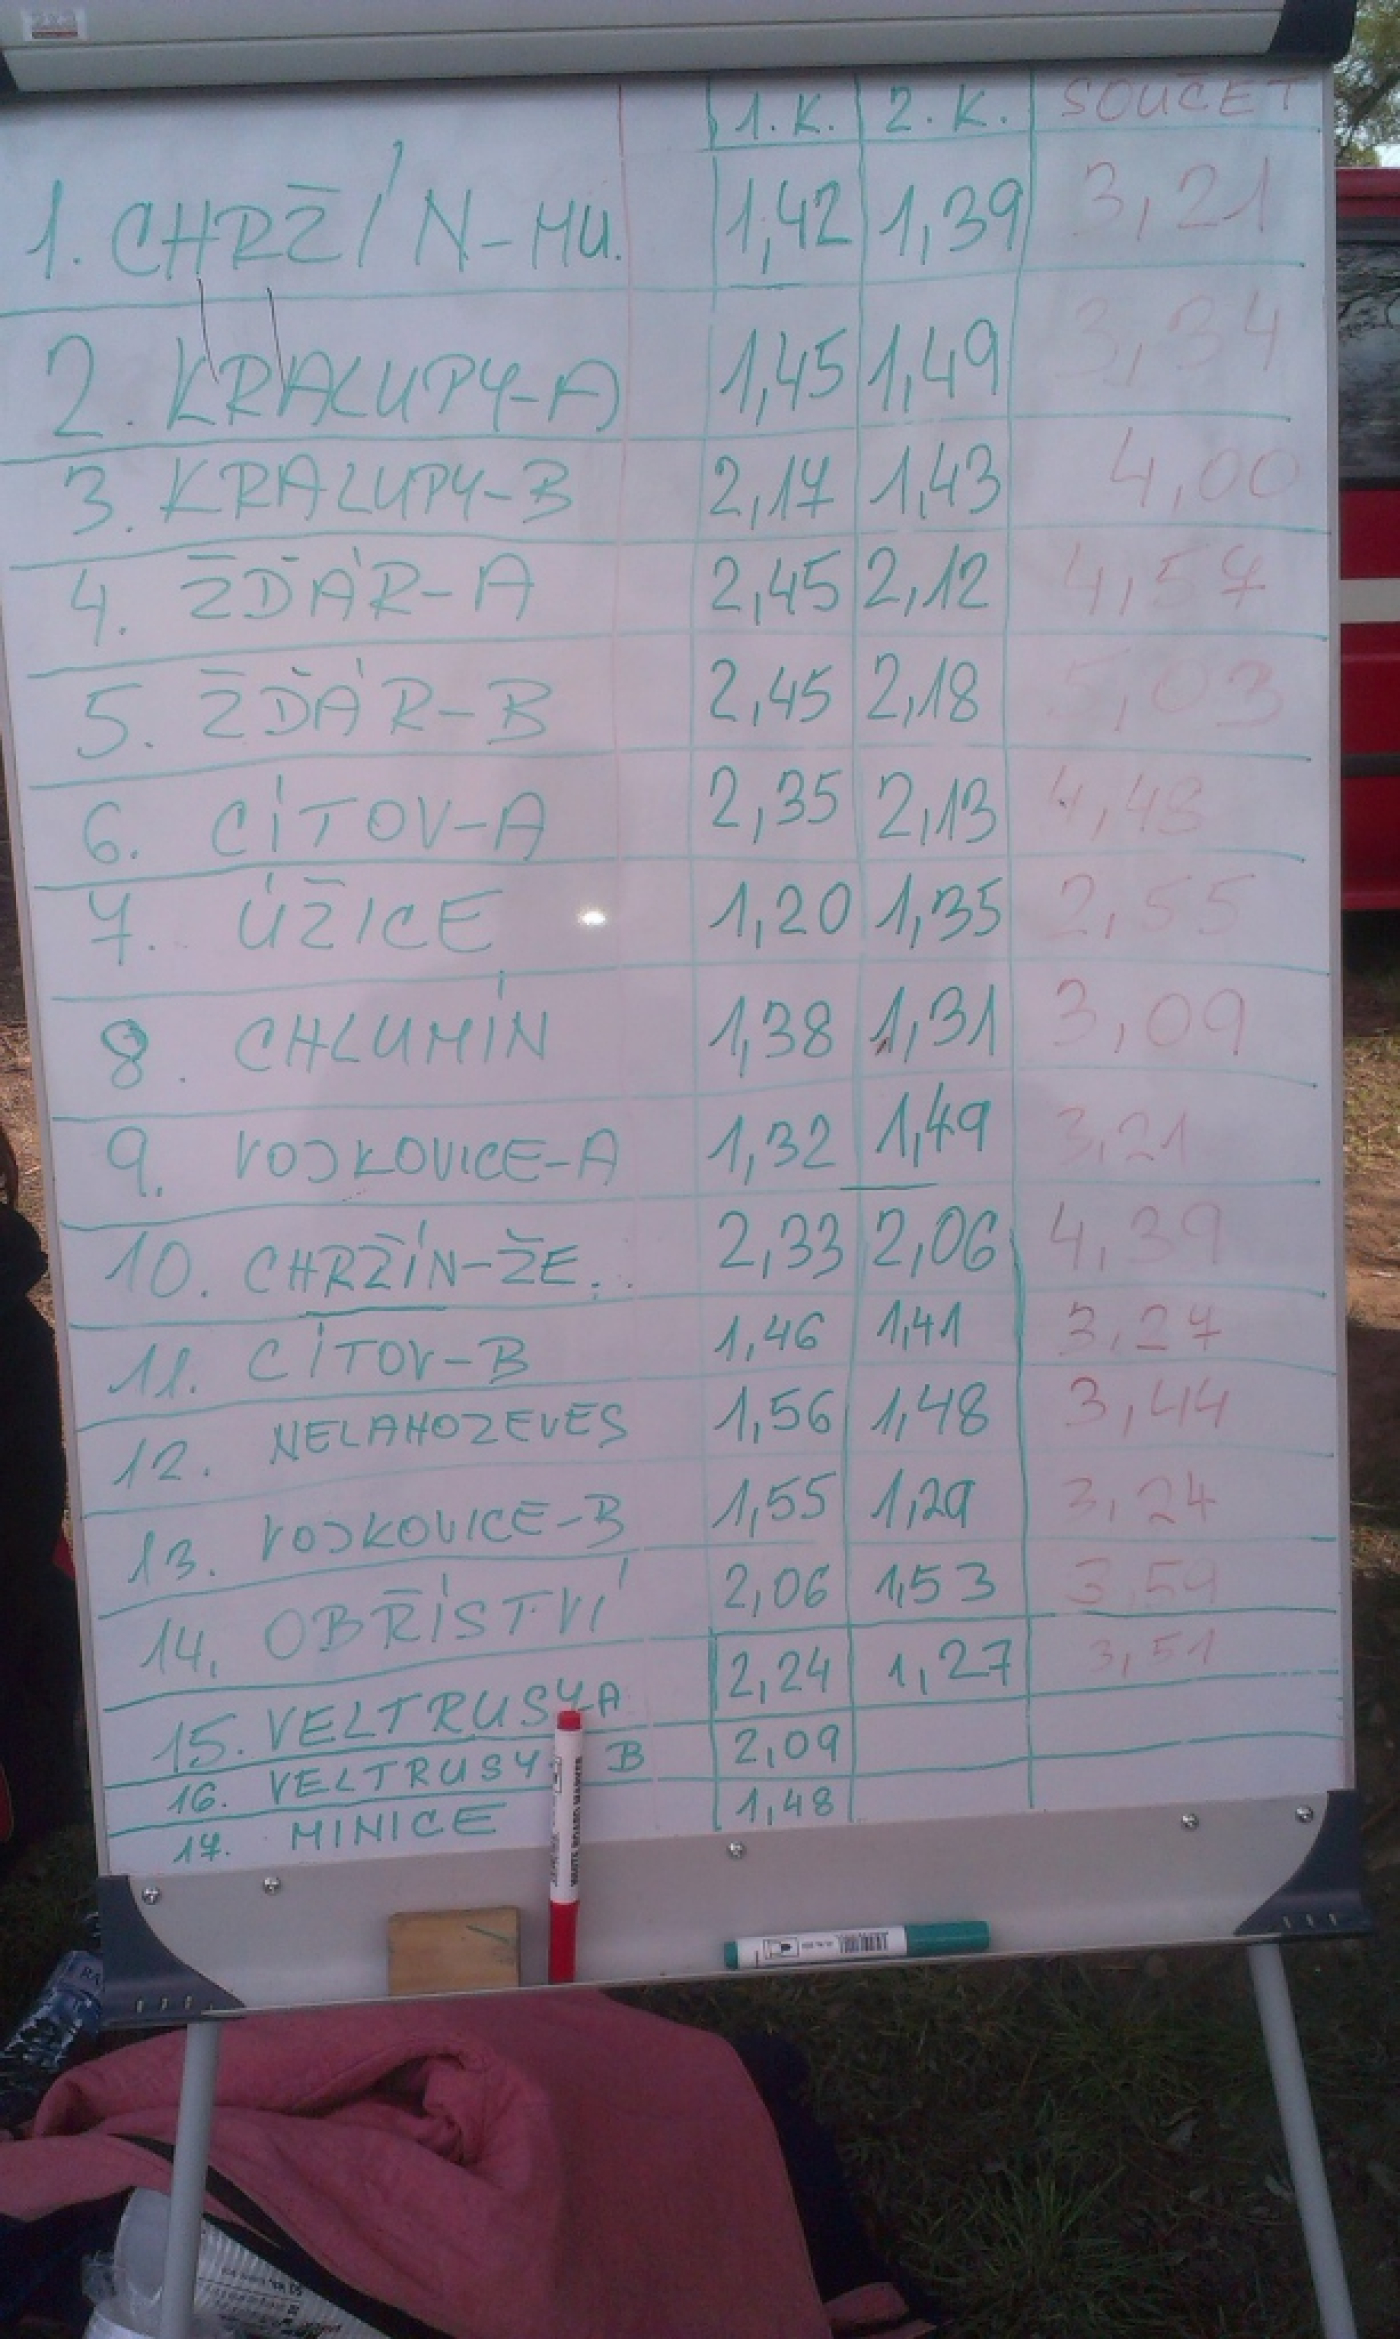 1. K. 2. K. SOUČET
1. CHRŽÍN-MU. 1,42 1,39 3,21
2. KRALUPY-A 1,45 1,49 3,34
3. KRALUPY-B 2,17 1,43 4,00
4. ŽĎÁR-A 2,45 2,12 4,57
5. ŽĎÁR-B 2,45 2,18 5,03
6. CÍTOV-A 2,35 2,13 4,48
7. ÚŽICE 1,20 1,35 2,55
8. CHLUMÍN 1,38 1,31 3,09
9. VOJKOVICE-A 1,32 1,49 3,21
10. CHRŽÍN-ŽE. 2,33 2,06 4,39
11. CÍTOV-B 1,46 1,41 3,27
12. NELAHOZEVES 1,56 1,48 3,44
13. VOJKOVICE-B 1,55 1,29 3,24
14. OBŘÍSTVÍ 2,06 1,53 3,59
15. VELTRUSY-A 2,24 1,27 3,51
16. VELTRUSY B 2,09
17. MINICE 1,48